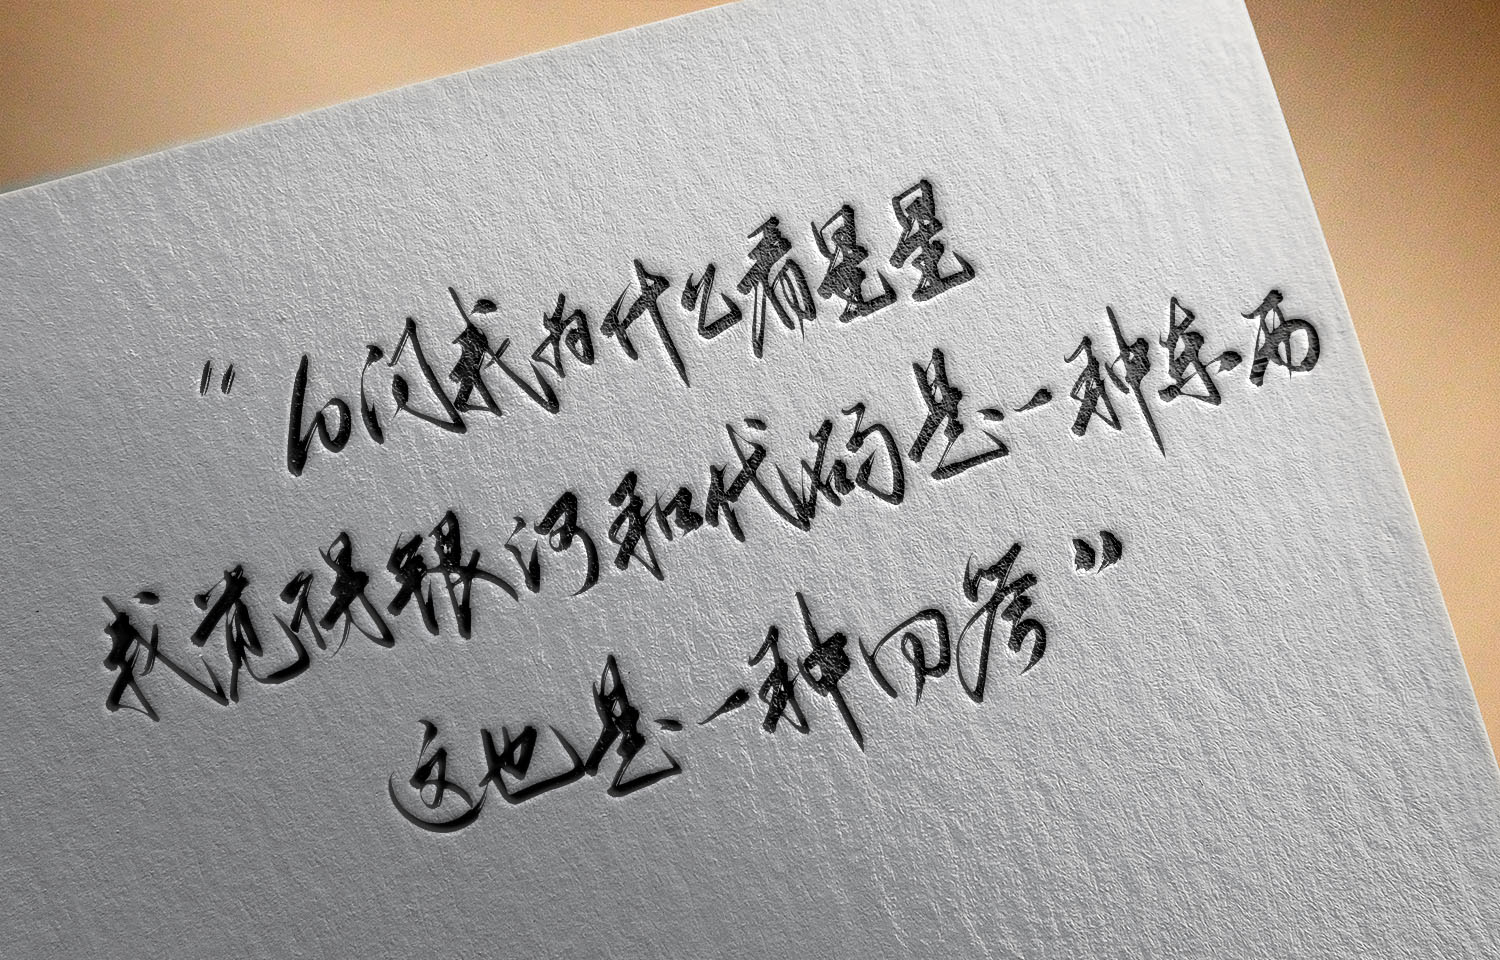 "问我为什么看星星
我觉得银河和代码是一种东西
这也是一种回答"